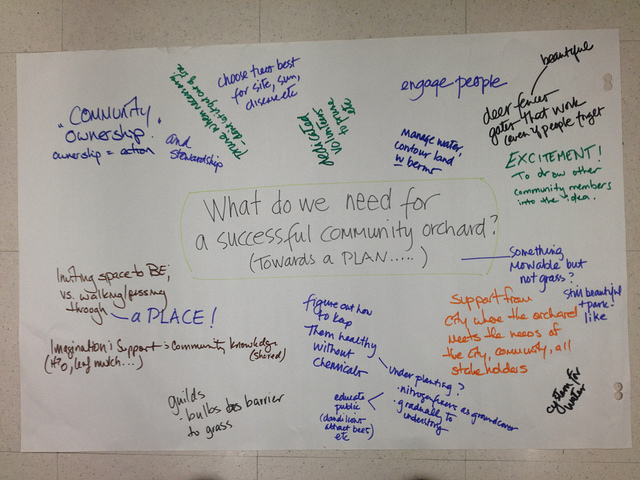 "COMMUNITY"
OWNERSHIP!
ownership = action
and
stewardship
prune when necessary
choose trees best
for site, sun,
disease etc
dedicated
volunteers
to prune
etc
engage people
manage water,
contour land
w berms
beautiful
deer fences
gates that work
(even if people forget
EXCITEMENT!
To draw other
community members
into the idea.
What do we need for
a successful community orchard?
(Towards a PLAN.....)
something
mowable but
not grass?
still beautiful
+ park
like
Inviting space to BE,
vs. walking/passing
through
a PLACE!
Imagination & Support & community knowledge
(shared)
(H2O, leaf mulch...)
figure out how
to keep
them healthy
without
chemicals
Support from
city where the orchard
meets the needs of
the city, community, all
stakeholders
guilds
· bulbs as barrier
to grass
educate
public
(dandelions
attract bees)
etc
under planting?
· nitrogen fixers as groundcover
· gradually to
understory
system for
water